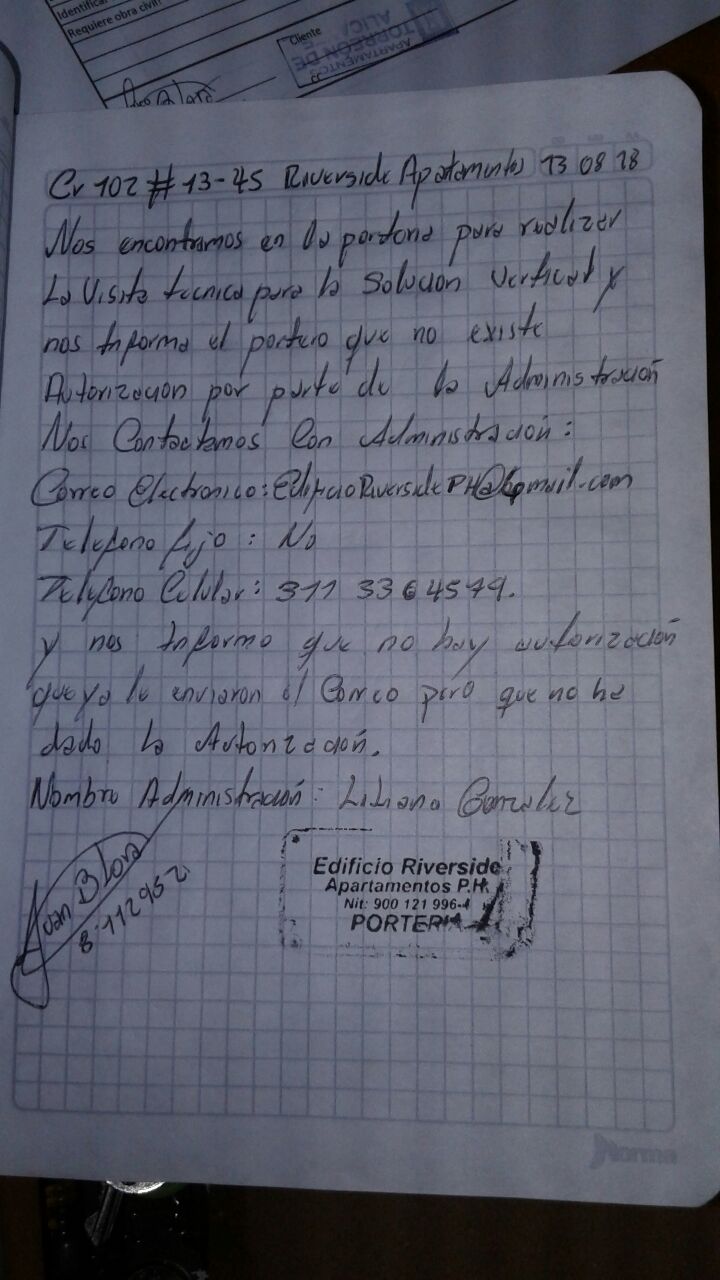 Identifica
Requiere obra civil
Cliente
APARTAMENTOS
TORREON DE
ALIC
Cr 102 # 13-45 Riverside Apatamentos 13 08 18
Nos encontramos en la porteria para realizar
La Visita tecnica para la Solucion Vertical y
nos Informa el portero que no existe
Autorizacion por parte de la Administración
Nos Contactamos Con Administración:
Correo Electronico: EdificioRiversidePH@Gmail.com
Telefono fijo: No
Telefono Celular: 311 3364579.
y nos Informo que no hay autorización
que ya le enviaron el Correo pero que no ha
dado la Autorización.
Nombre Administración: Liliana Gonzalez
Juan B Lora
8.112952
Edificio Riverside
Apartamentos P.H.
Nit: 900 121 996-1
PORTERIA
Norma